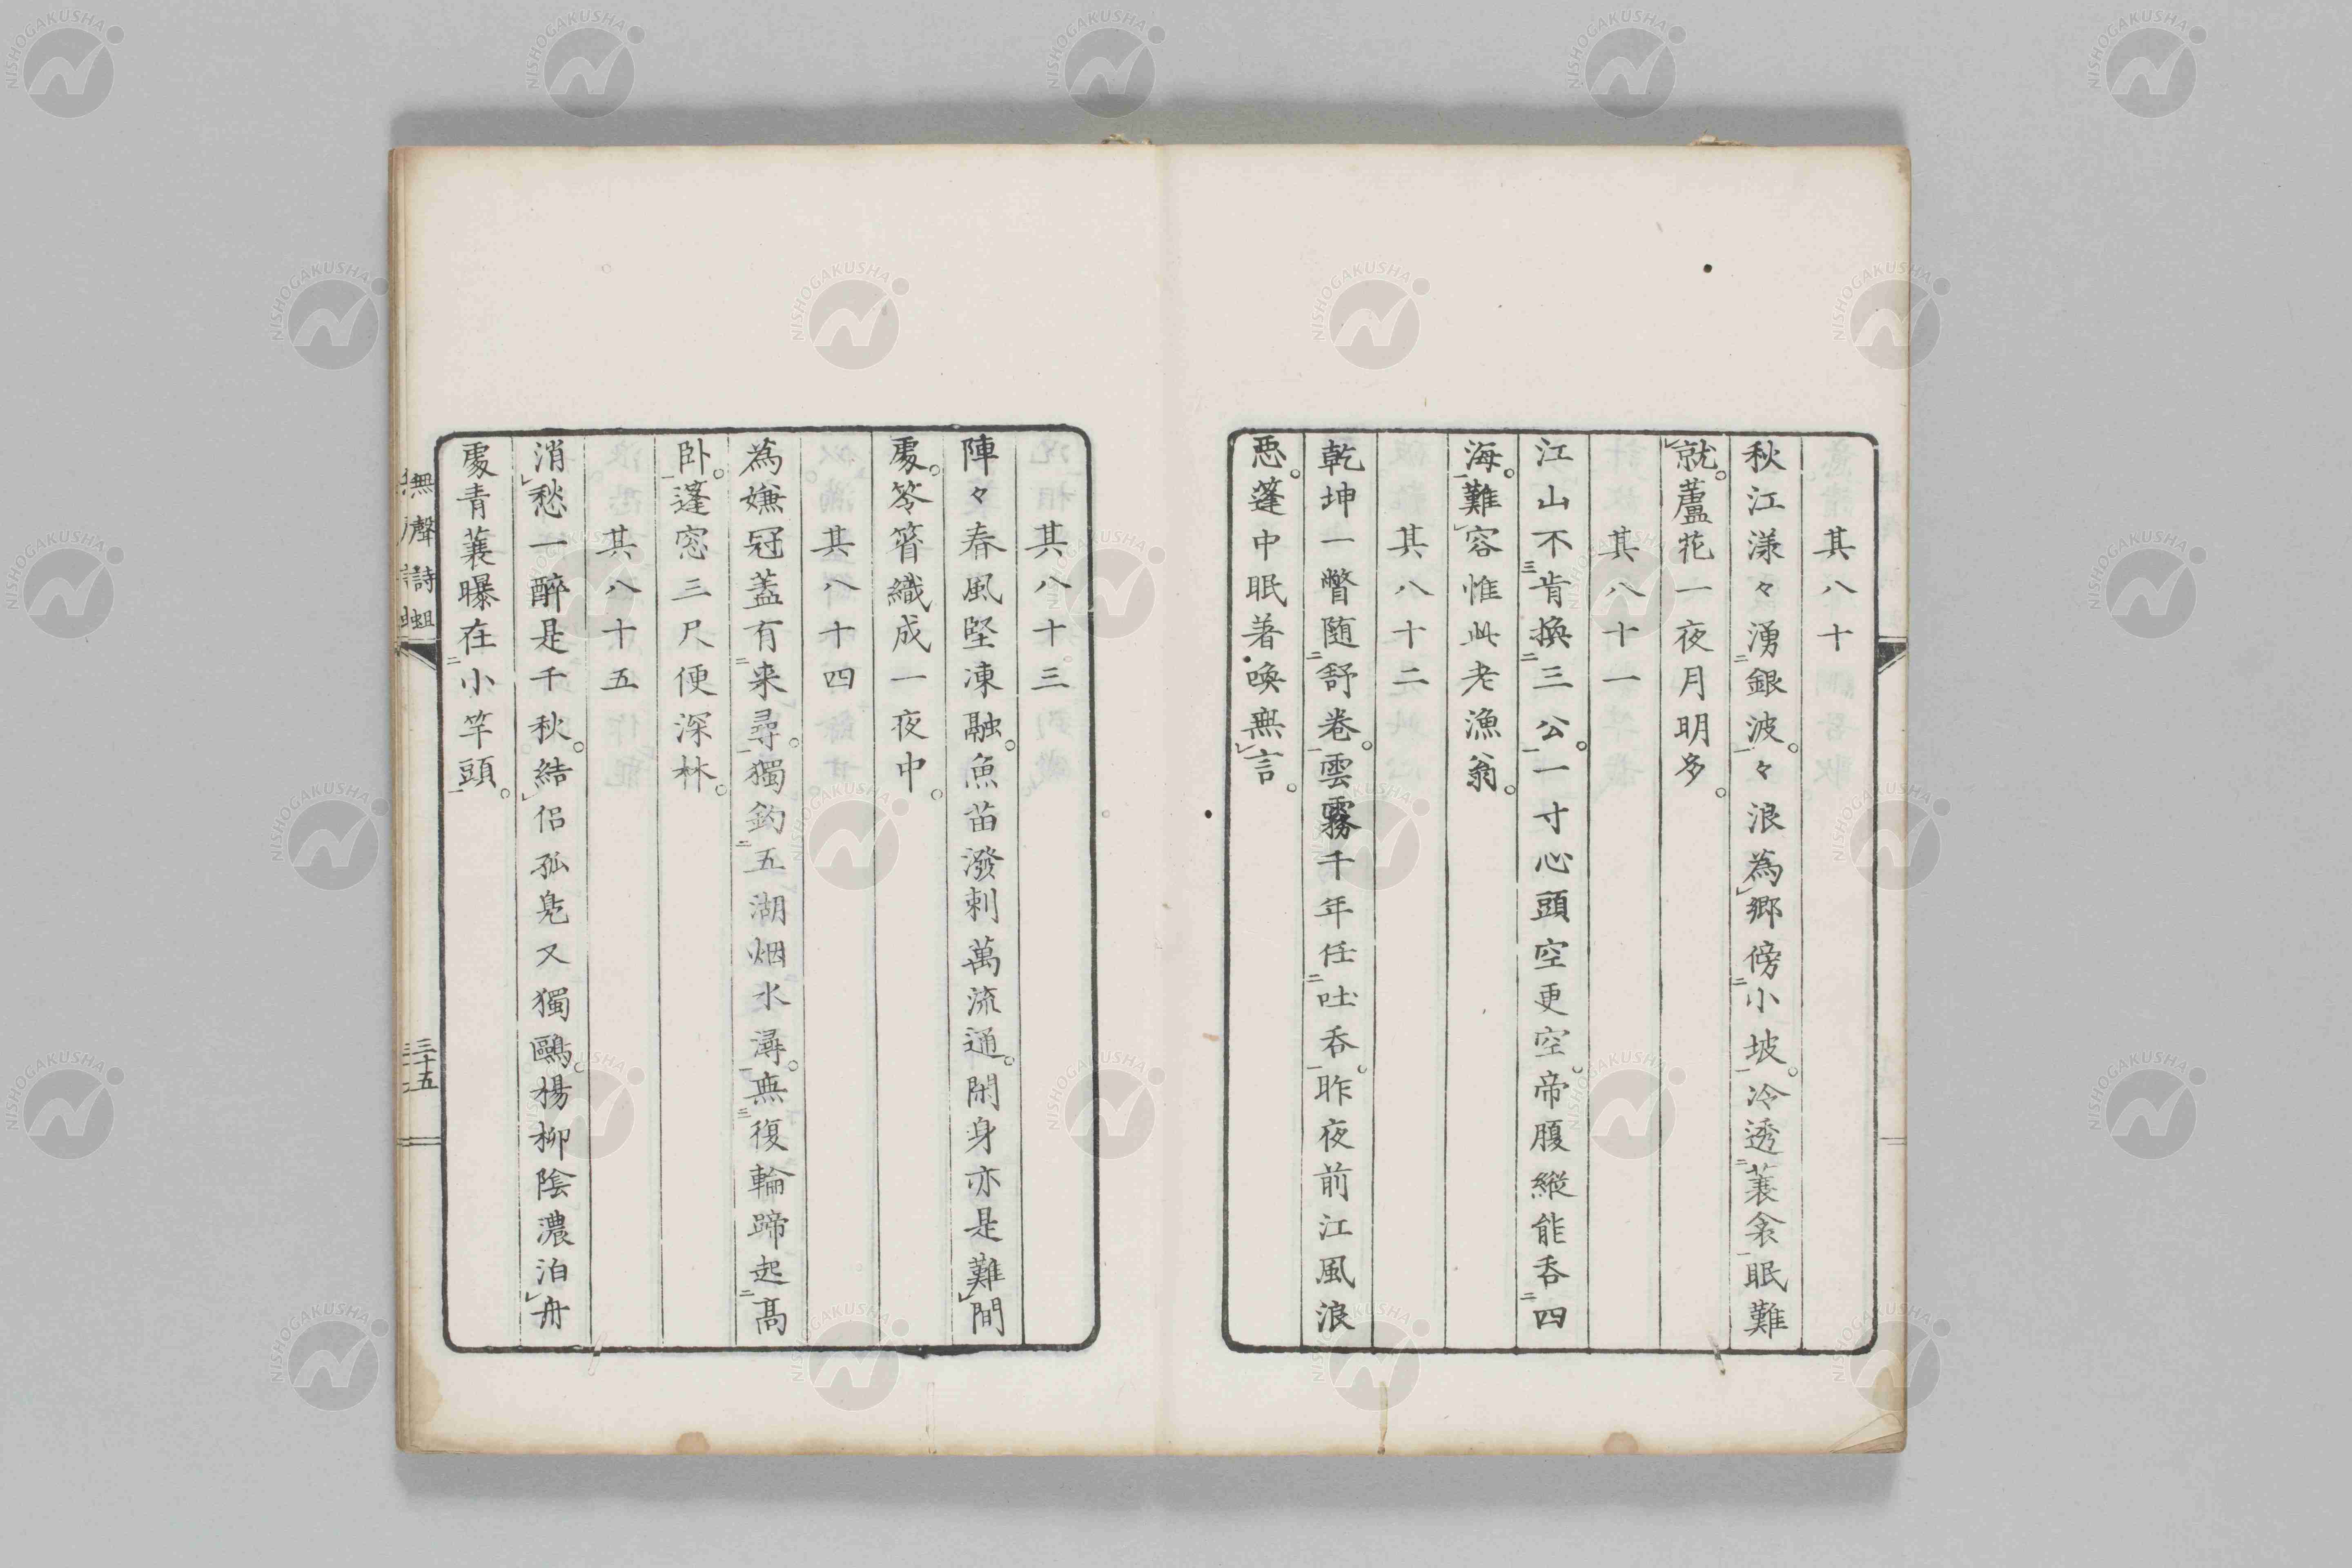 其八十
秋江漾々湧銀波。々浪為鄉傍小坡。冷透蓑衾眠難
就。蘆花一夜月明多。
其八十一
江山不肯換三公。一寸心頭空更空。帝腹縱能吞四
海。難容惟此老漁翁。
其八十二
乾坤一瞥随舒卷。雲霧千年任吐吞。昨夜前江風浪
惡。蓬中眠著喚無言。
其八十三
陣々春風堅凍融。魚苗潑剌萬流通。閑身亦是難間
處。笭箵織成一夜中。
其八十四
為嫌冠蓋有来尋。獨釣五湖烟水潯。無復輪蹄起高
卧。蓬窓三尺便深林。
其八十五
消愁一醉是千秋。結侶孤鳧又獨鷗。楊柳陰濃泊舟
處青蓑曝在小竿頭。
無聲詩
三十五
NISHOGAKUSHA